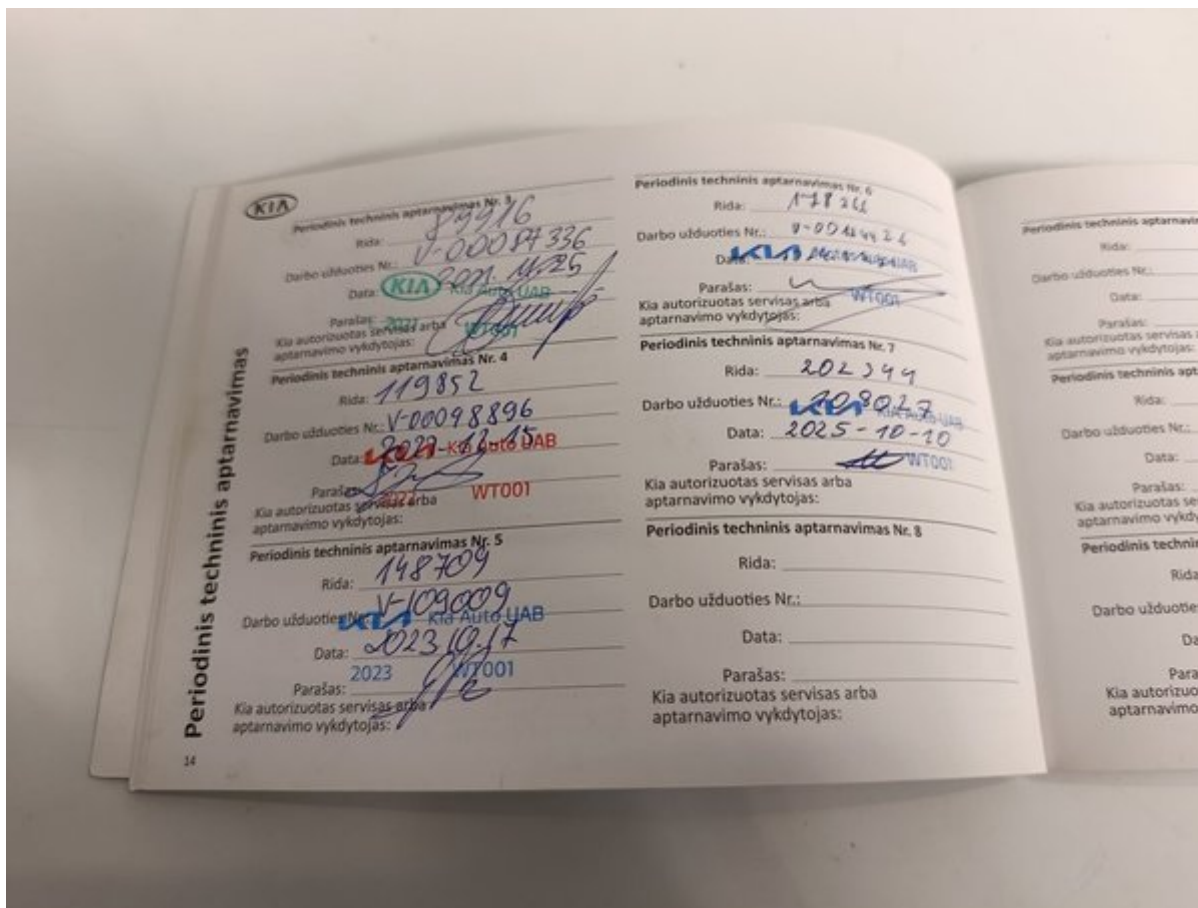 KIA
Periodinis techninis aptarnavimas
Periodinis techninis aptarnavimas Nr. 3
Rida: 89916
Darbo užduoties Nr.: V-00087336
Data: 2021. 11.25
KIA Kia Auto UAB
Parašas:
2021 WT001
Kia autorizuotas servisas arba
aptarnavimo vykdytojas:
Periodinis techninis aptarnavimas Nr. 4
Rida: 119852
Darbo užduoties Nr.: V-00098896
Data: 2022-12-15
KIA Kia Auto UAB
Parašas:
2022 WT001
Kia autorizuotas servisas arba
aptarnavimo vykdytojas:
Periodinis techninis aptarnavimas Nr. 5
Rida: 148709
Darbo užduoties Nr.: V-109009
KIA Kia Auto UAB
Data: 2023.10.17
2023 WT001
Parašas:
Kia autorizuotas servisas arba
aptarnavimo vykdytojas:
14
Periodinis techninis aptarnavimas Nr. 6
Rida:
Darbo užduoties Nr.:
Data: KIA UAB
Parašas:
WT001
Kia autorizuotas servisas arba
aptarnavimo vykdytojas:
Periodinis techninis aptarnavimas Nr. 7
Rida: 202344
Darbo užduoties Nr.: 208027
KIA Kia Auto UAB
Data: 2025-10-10
Parašas: WT001
Kia autorizuotas servisas arba
aptarnavimo vykdytojas:
Periodinis techninis aptarnavimas Nr. 8
Rida:
Darbo užduoties Nr.:
Data:
Parašas:
Kia autorizuotas servisas arba
aptarnavimo vykdytojas:
Periodinis techninis
Rida:
Darbo užduoties Nr.:
Data:
Parašas:
Kia autorizuotas servisas
aptarnavimo vykdytojas:
Periodinis techninis
Rida:
Darbo užduoties Nr.:
Data:
Parašas:
Kia autorizuotas
aptarnavimo
Periodinis
Rida
Darbo
Kia
aptarnavimo